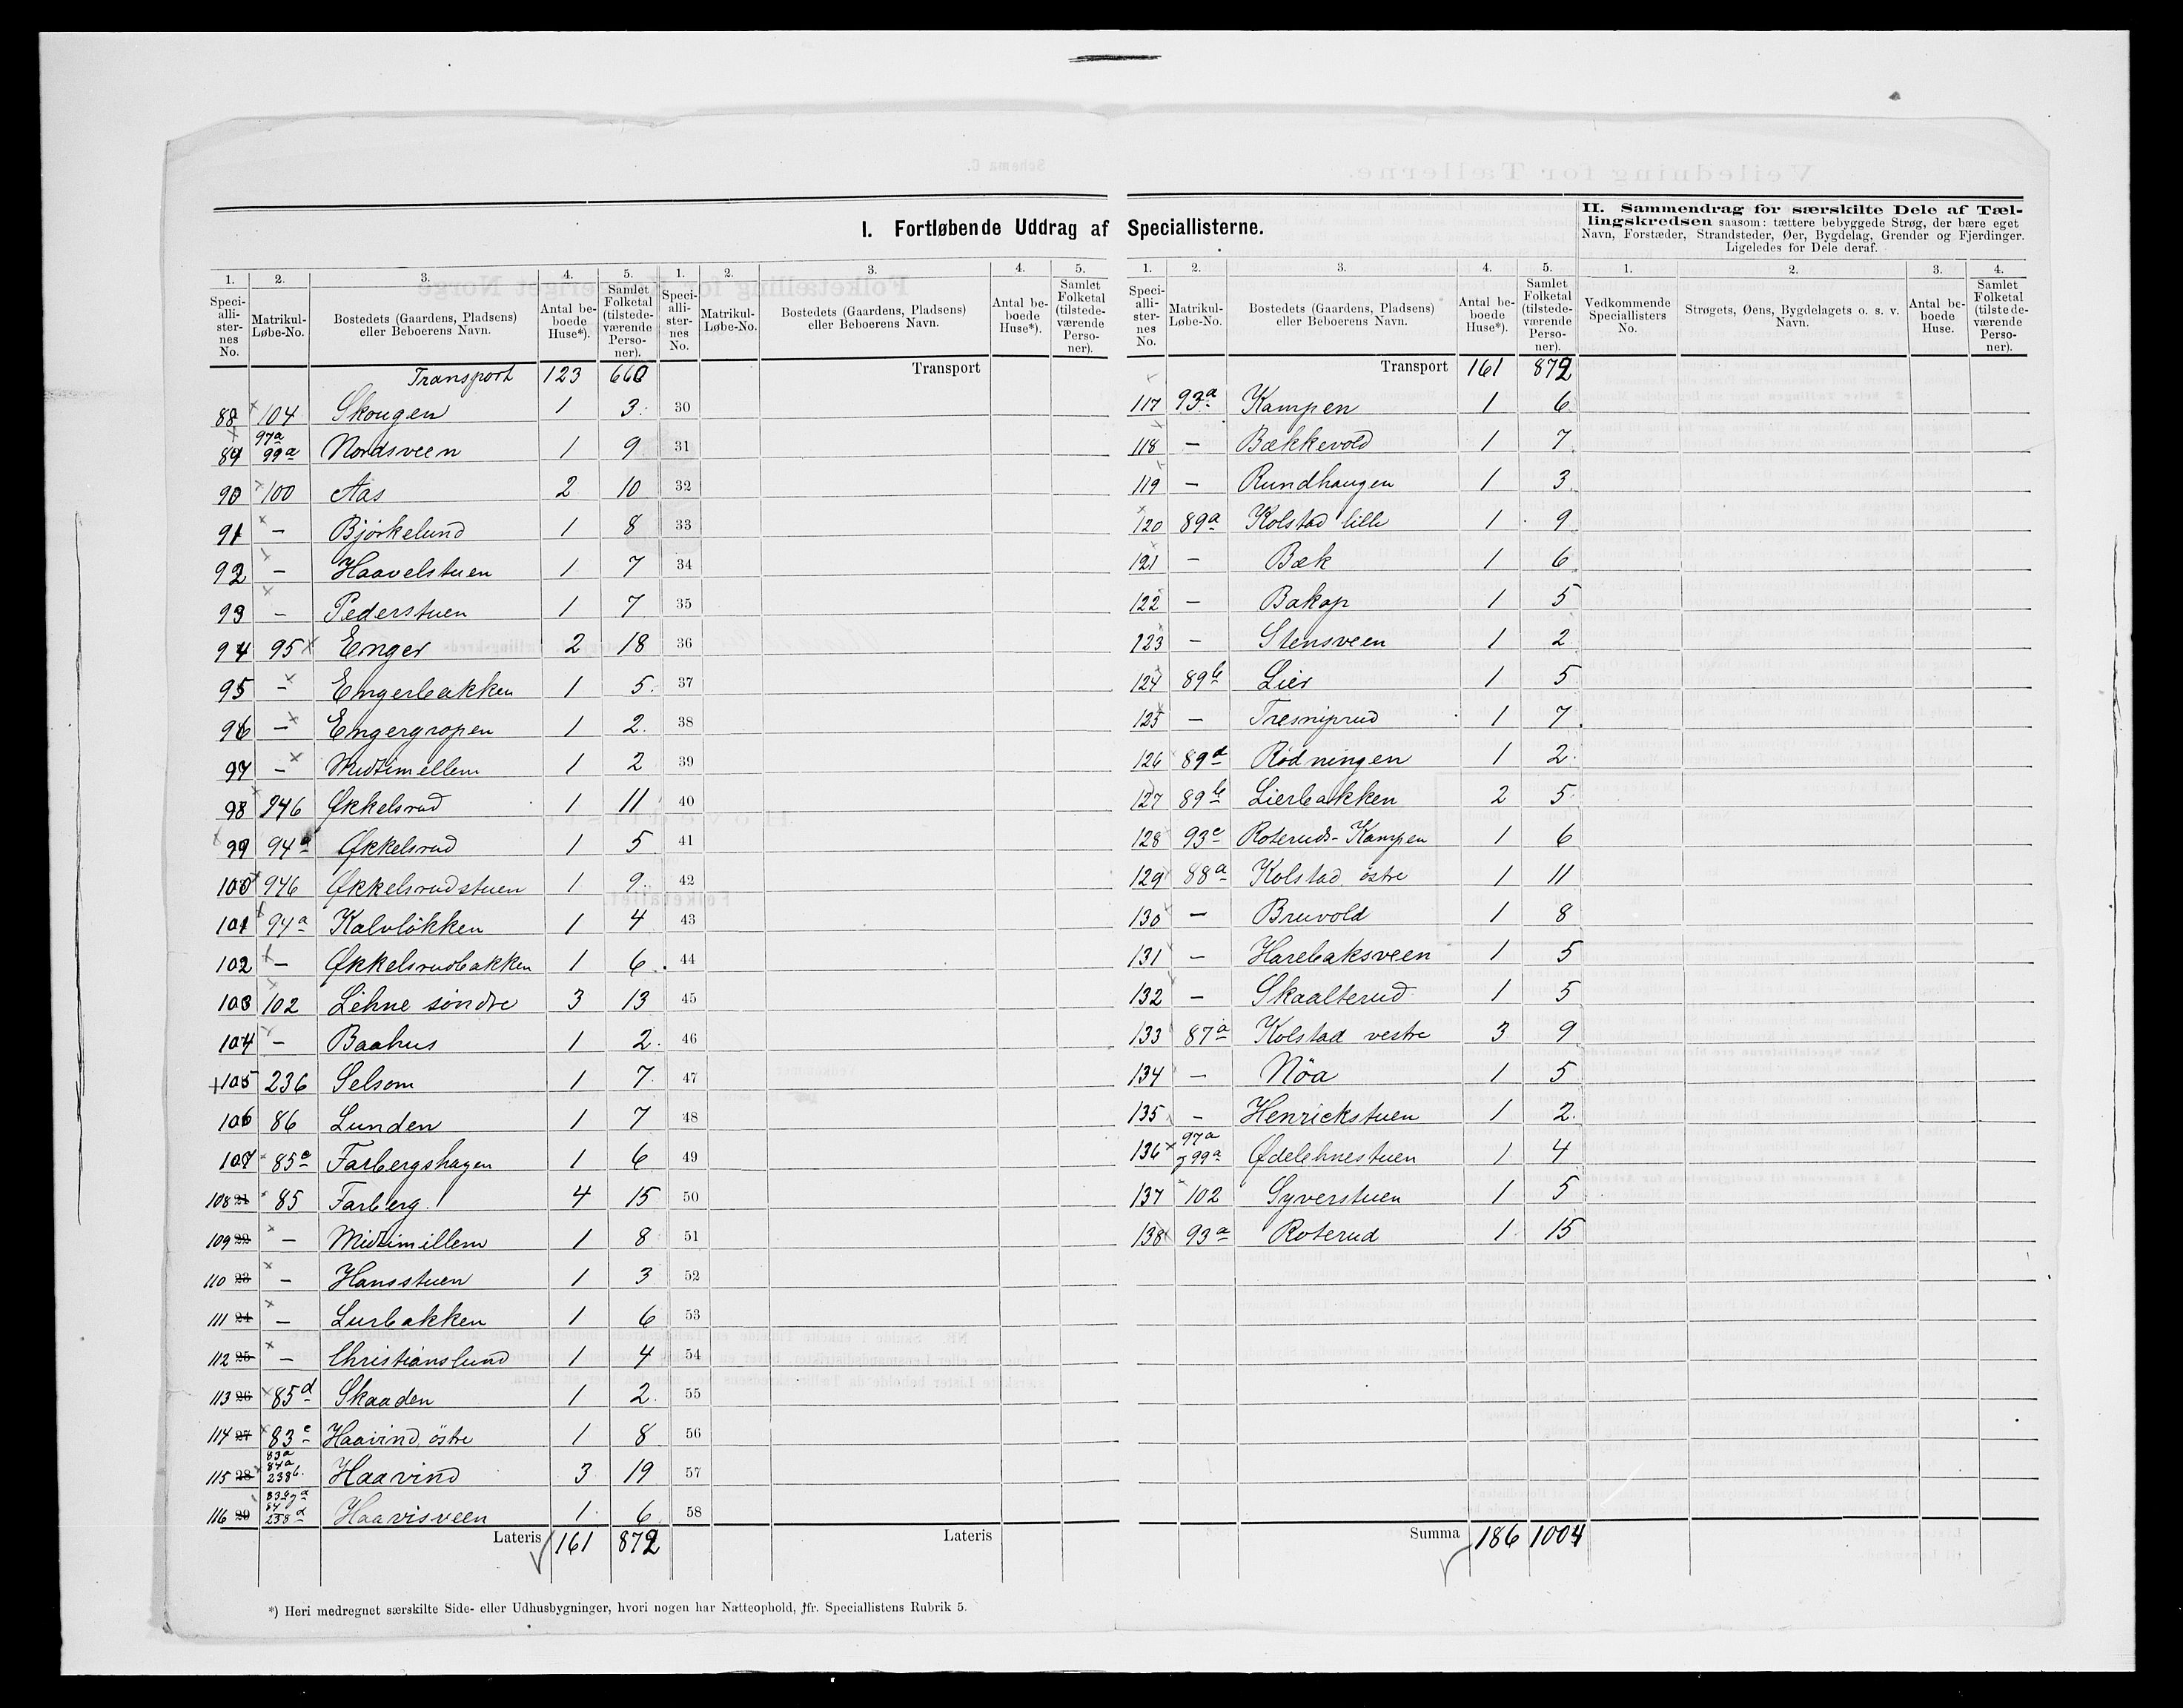 I. Fortløbende Uddrag af Speciallisterne.
II. Sammendrag for særskilte Dele af Tællingskredsen saasom: tættere bebyggede Strøg, der bære eget
Navn, Forstæder, Strandsteder, Øer, Bygdelag, Grender og Fjerdinger.
Ligeledes for Dele deraf.
1. 2. 3. 4. 5.
Speciallisternes No. Matrikul-Løbe-No. Bostedets (Gaardens, Pladsens) eller Beboerens Navn. Antal beboede Huse*). Samlet Folketal (tilstedeværende Personer).
Transport 123 660
88 104 Skougen 1 3
89 97a 99a Nordsveen 1 9
90 100 Aas 2 10
91 – Bjørkelund 1 8
92 – Haavelstuen 1 7
93 – Pederstuen 1 7
94 95 Enger 2 18
95 – Engerbakken 1 5
96 – Engergropen 1 2
97 – Midtimellem 1 2
98 946 Økkelsrud 1 11
99 94a Økkelsrud 1 5
100 946 Økkelsrudstuen 1 9
101 94a Kalvløkken 1 4
102 – Økkelsrudbakken 1 6
103 102 Lehne söndre 3 13
104 – Baahus 1 2
105 236 Selsom 1 7
106 86 Lunden 1 7
107 85e Farbergshagen 1 6
108 21 85 Farberg 4 15
109 22 – Midtimillem 1 8
110 23 – Hansstuen 1 3
111 24 – Lurbakken 1 6
112 25 – Christianslund 1 4
113 26 85d Skaaden 1 2
114 27 83c Haavind östre 1 8
115 28 83a 84a 238b Haavind 3 19
116 29 Haavisveen 1 6
Lateris 161 872
*) Heri medregnet særskilte Side- eller Udhusbygninger, hvori nogen har Natteophold, jfr. Speciallistens Rubrik 5.
1. 2. 3. 4. 5.
Speciallisternes No. Matrikul-Løbe-No. Bostedets (Gaardens, Pladsens) eller Beboerens Navn. Antal beboede Huse*). Samlet Folketal (tilstedeværende Personer).
Transport
30
31
32
33
34
35
36
37
38
39
40
41
42
43
44
45
46
47
48
49
50
51
52
53
54
55
56
57
58
Lateris
1. 2. 3. 4. 5.
Speciallisternes No. Matrikul-Løbe-No. Bostedets (Gaardens, Pladsens) eller Beboerens Navn. Antal beboede Huse*). Samlet Folketal (tilstedeværende Personer).
Transport 161 872
117 93a Kampen 1 6
118 – Bækkevold 1 7
119 – Rundhaugen 1 3
120 89a Kolstad lille 1 9
121 – Bæk 1 6
122 – Bakop 1 5
123 – Stensveen 1 2
124 89b Lier 1 5
125 – Tresniprud 1 7
126 89d Rødningen 1 2
127 89b Lierbakken 2 5
128 93c Roteruds-Kampen 1 6
129 88a Kolstad östre 1 11
130 – Bruvold 1 8
131 – Harebaksveen 1 5
132 – Skaalterud 1 5
133 87a Kolstad vestre 3 9
134 – Nöa 1 5
135 – Henrickstuen 1 2
136 97a g 99a Ødelehnestuen 1 4
137 102 Syverstuen 1 5
138 93a Roterud 1 15
Summa 186 1004
1. 2. 3. 4.
Vedkommende Speciallisters No. Strøgets, Øens, Bygdelagets o. s. v. Navn. Antal beboede Huse. Samlet Folketal (tilstedeværende Personer).